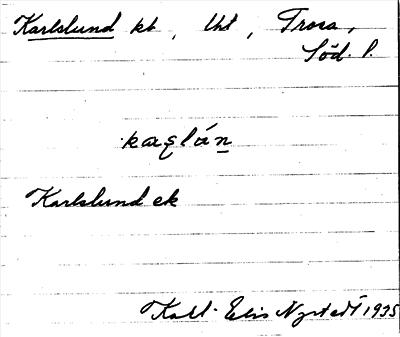 Karlslund kt, Uht, Trosa,
Söd. l.
kaʂlán
Karlslund ek
Karl-Elis Nystedt 1935